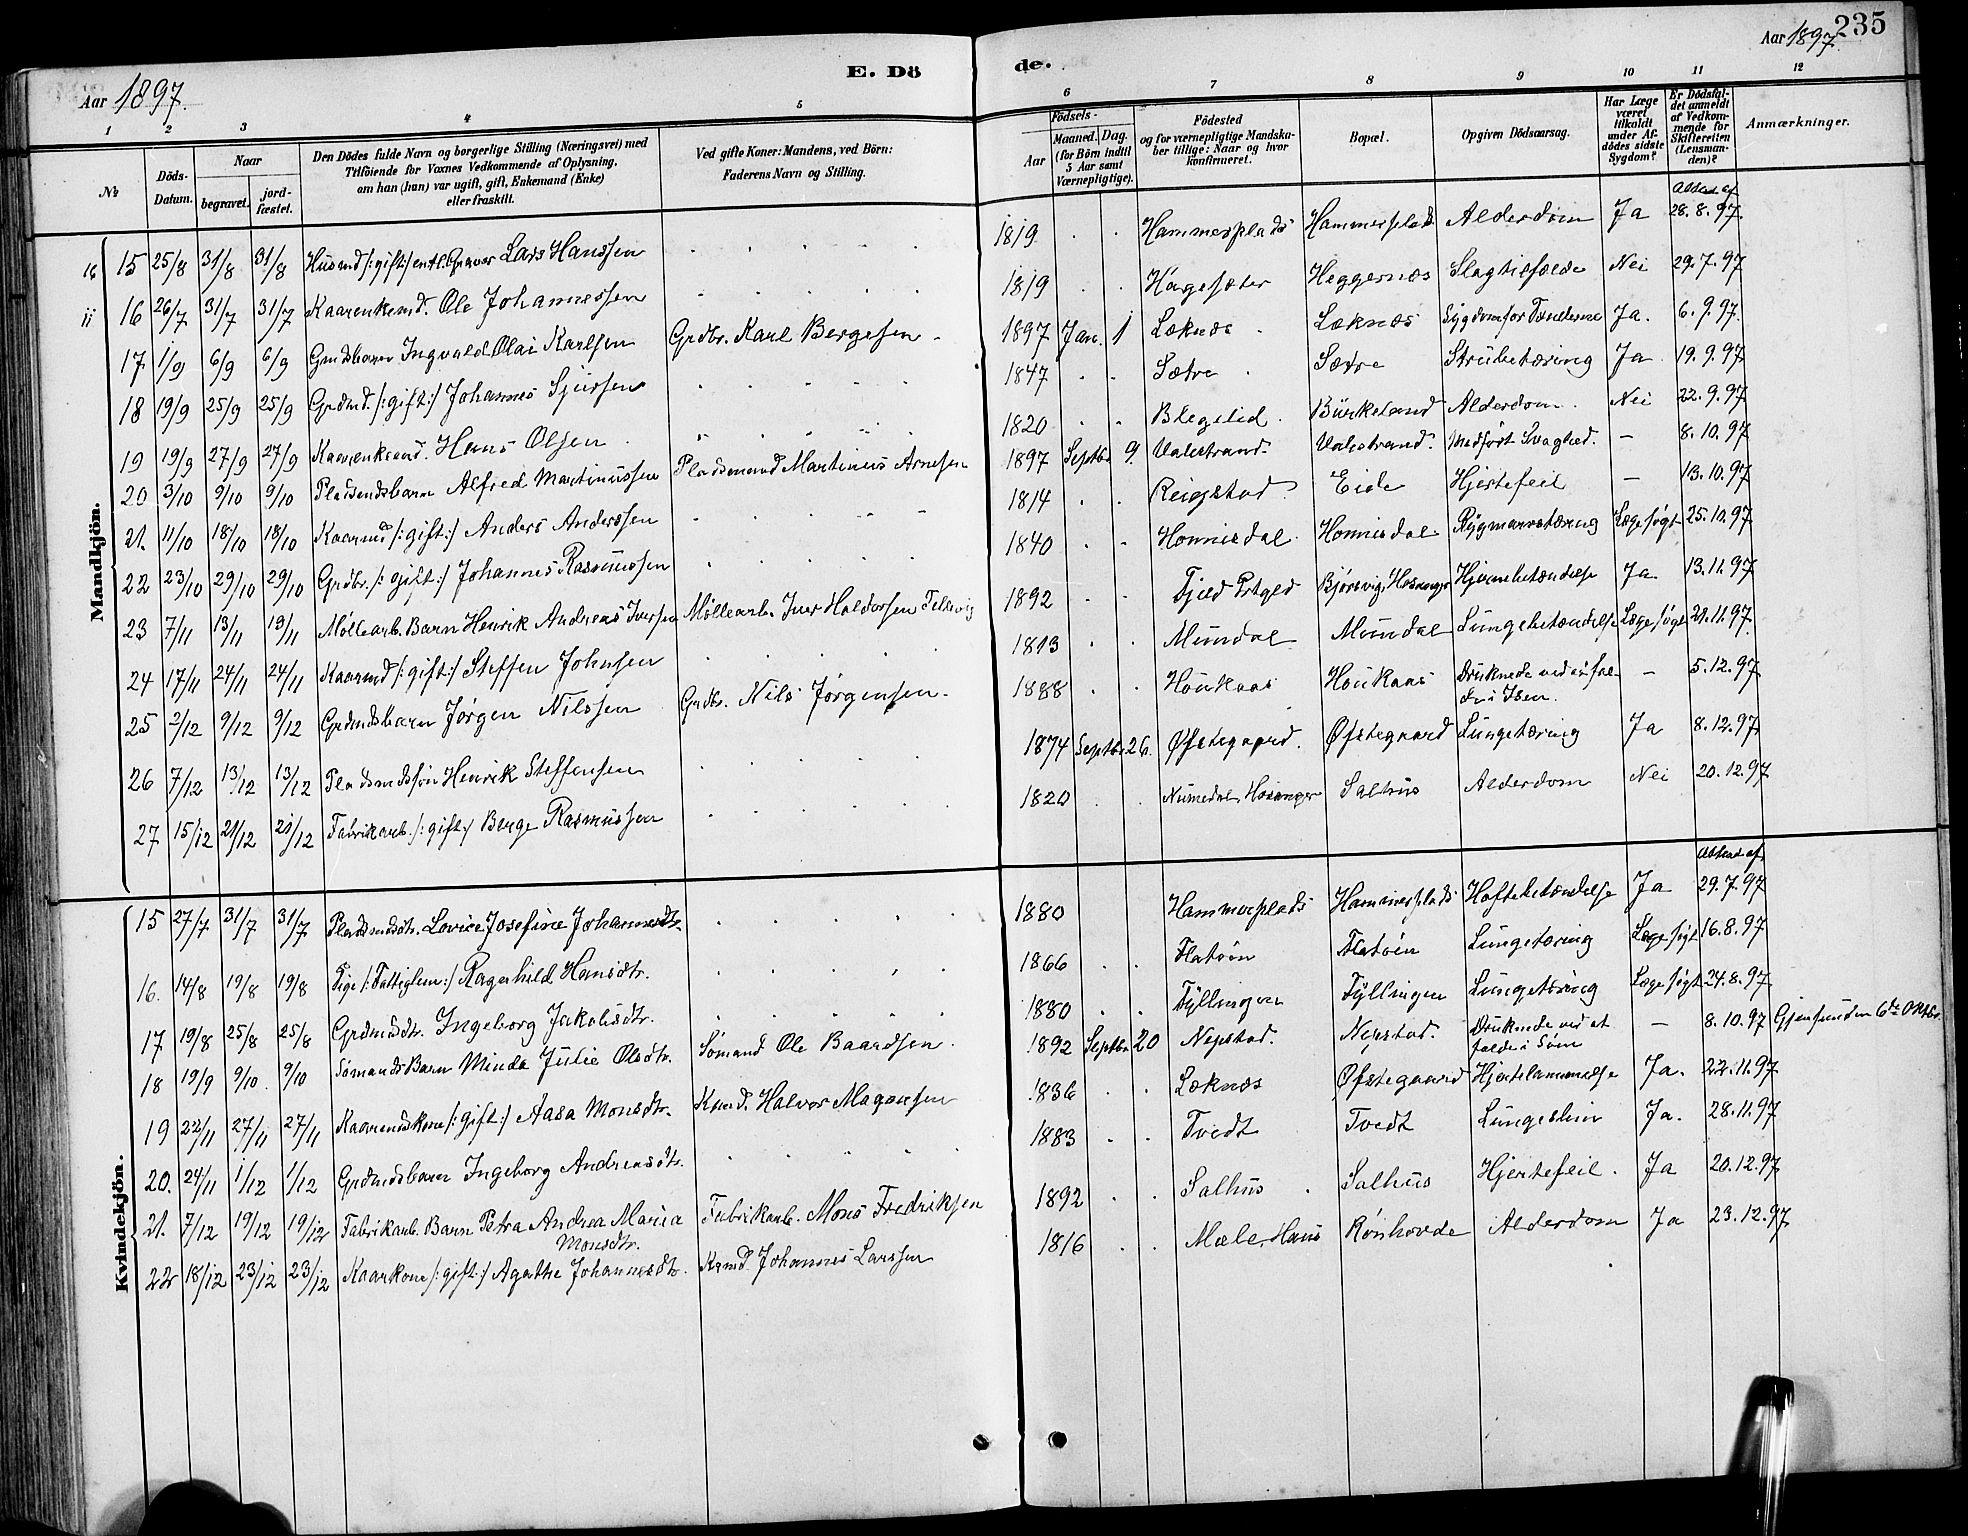 235
Aar 1897.
E. Dö
de.
Aar 1897.
1 2 3 4 5 6 7 8 9 10 11 12
№
Döds-Datum.
Naar
begravet.
jord-fæstet.
Den Dödes fulde Navn og borgerlige Stilling (Næringsvei) med
Tilföiende for Voxnes Vedkommende af Oplysning,
om han (hun) var ugift, gift, Enkemand (Enke)
eller fraskilt.
Ved gifte Koner: Mandens, ved Börn:
Faderens Navn og Stilling.
Födsels-
Aar
Maaned.
Dag.
(for Börn indtil
5 Aar samt
Værnepligtige).
Födested
og for værnepligtige Mandska-
ber tillige: Naar og hvor
konfirmeret.
Bopæl.
Opgiven Dödsaarsag.
Har Læge
været
tilkaldt
under Af-
dödes sidste
Sygdom?
Er Dödsfal-
det anmeldt
af Vedkom-
mende for
Skifteretten
(Lensman-
den)?
Anmærkninger.
Mandkjön.
16 15 25/8 31/8 31/8 Husmd /:gift:/ entl. Graver Lars Hanssen 1819 Hammersplads Hammersplads Alderdom Ja Attest af 28.8.97.
ii 16 26/7 31/7 31/7 Kaarenkemd. Ole Johannessen 1819 Hagesæter Heggernæs Slagtilfælde Nei 29.7.97
17 1/9 6/9 6/9 Grdmdsbarn Ingvald Olai Karlsen Grdbr. Karl Bergesen 1897 Jan. 1 Læknæs Læknæs Sygdom for Tænderne Ja. 6.9.97.
18 19/9 25/9 25/9 Grdmd. /:gift:/ Johannes Sjursen 1847 Sætre Sætre Strubetæring Ja 19.9.97
19 19/9 27/9 27/9 Kaarenkemd. Hans Olsen 1820 Blegelid Burkeland Alderdom Nei 22.9.97
20 3/10 9/10 9/10 Pladsmdsbarn Alfred Martinussen Pladsmand Martinus Arnesen 1897 Septbr 9. Valestrand. Valestrand. Medfört Svaghed. - 8.10.97
21. 11/10 18/10 18/10 Kaarmd /:gift:/ Anders Anderssen 1814 Reigstad Eide Hjertefeil - 13.10.97
22 23/10 29/10 29/10 Grdbr. /:gift:/ Johannes Rasmussen 1840 Honnisdal Honnisdal Rygmarvstæring Læge søgt 25.10.97
23 7/11 13/11 19/11 Møllearb. Barn Henrik Andreas Iversen Møllearb. Iver Haldorsen 1892 Fjæld Prstgld Bjørsvig, Hosanger Hjernebetændelse Ja 13.11.97
24 17/11 24/11 24/11 Kaarmd /:gift:/ Steffen Johnsen 1813 Mundal Mundal Lungebetændelse Læge søgt 21.11.97.
25 2/12 9/12 9/12 Grdmdsbarn Jørgen Nilssen Grdbr. Nils Jørgensen. 1888 Houkaas Houkaas Druknede ved at fal-
de i Isen. - 5.12.97
26 7/12 13/12 13/12 Pladsmdssøn Henrik Steffensen 1874 Septbr 26. Øfstegaard. Øfstegaard Lungetæring Ja 8.12.97
27 15/12 21/12 21/12 Fabrikarb. /:gift:/ Berge Rasmussen 1820 Numedal, Hosanger Salhus Alderdom Nei 20.12.97
Kvindekjön.
15 27/7 31/7 31/7 Pladsmdsdtr. Lovise Josefine Johannesdtr. 1880 Hammersplads Hammersplads Hoftebetændelse Ja Attest af 29.7.97
16. 14/8 19/8 19/8 Pige /:Fattiglem:/ Ragnhild Hansdtr. 1866 Flatøen Flatøen Lungetæring Læge søgt 16.8.97
17 19/8 25/8 25/8 Grdmdsdtr. Ingeborg Jakobsdtr. 1880 Fyllingen Fyllingen Lungetæring Læge søgt 24.8.97
18 19/9 9/10 9/10 Sømands Barn Minda Julie Olsdtr. Sømand Ole Baardsen. 1892 Septbr 20 Nepstad. Nepstad. Druknede ved at
falde i Søen - 8.10.97 Gjenfunden 6te Oktbr.
19 22/11 27/11 27/11 Kaaremdskone /:gift:/ Aasa Monsdtr. Krmd. Halvor Magnusen 1836 Læknæs Øfstegaard Hjertelammelse Ja. 22.11.97
20. 24/11 1/12 1/12 Grdmdsbarn Ingeborg Andreasdtr. 1883 Tvedt Tvedt Lungeslim Ja. 28.11.97
21. 7/12 19/12 19/12 Fabrikarb. Barn Petra Andrea Maria
Monsdtr. Fabrikarb. Mons Fredriksen 1892 Salhus Salhus Hjertefeil. Ja 20.12.97
22 18/12 23/12 23/12 Kaarkone /:gift:/ Agathe Johannesdtr. Krmd. Johannes Larssen 1816 Mæle, Haus Rønhovde Alderdom Ja 23.12.97